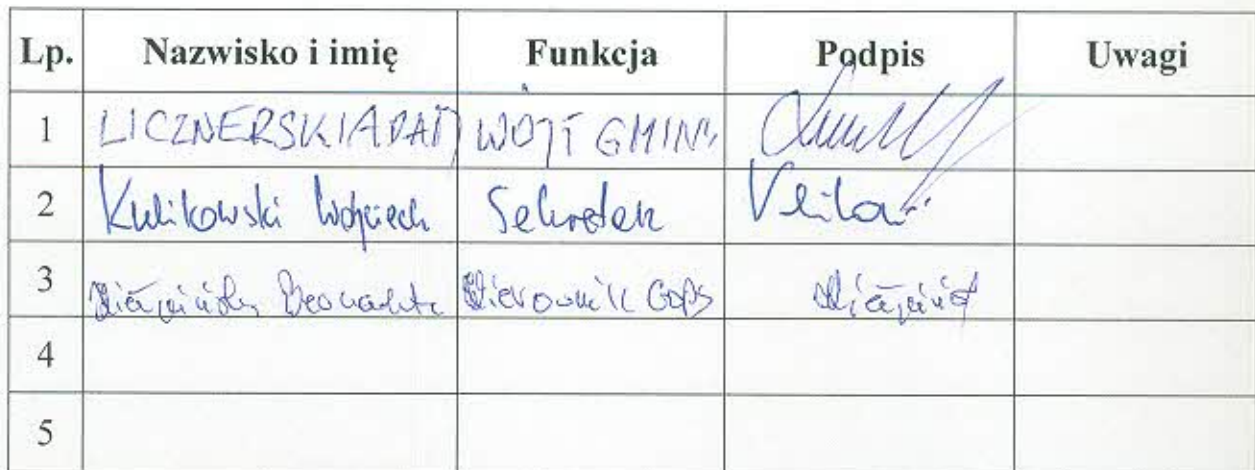 Lp. Nazwisko i imię Funkcja Podpis Uwagi
1 LICZNERSKI ADAM WÓJT GMINY
2 Kulikowski Wojciech Sekretarz
3 Kierownik GOPS
4
5